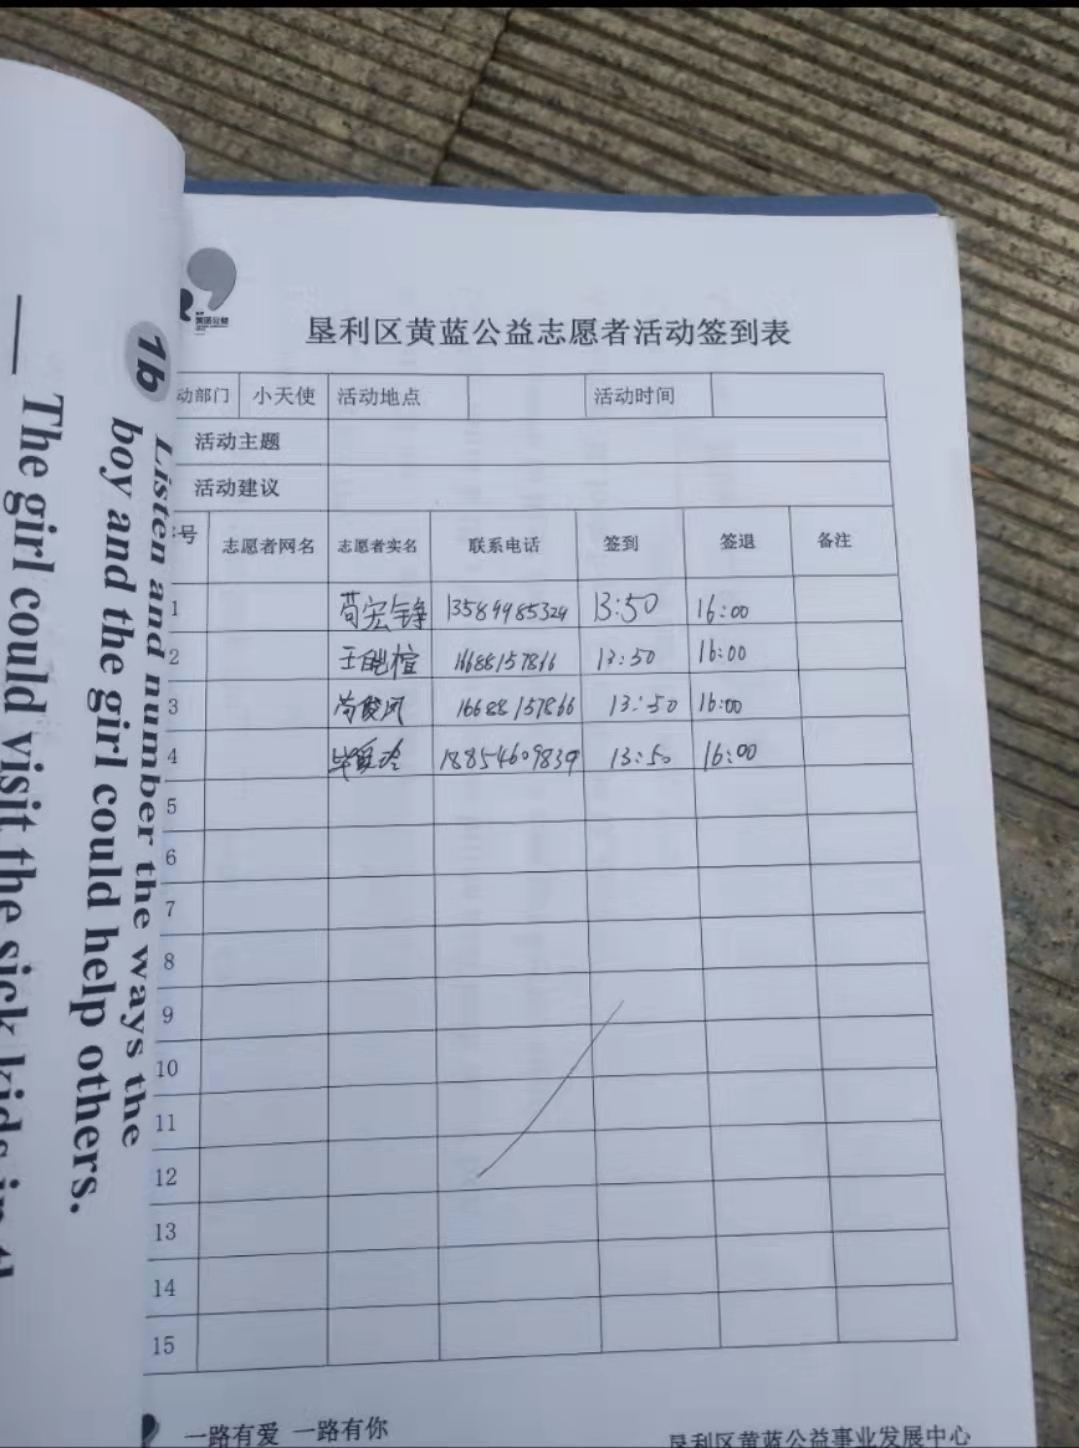 垦利区黄蓝公益志愿者活动签到表
动部门 小天使 活动地点 活动时间
活动主题
活动建议
号 志愿者网名 志愿者实名 联系电话 签到 签退 备注
1 苟宏锋 13589985324 13:50 16:00
2 王 16688157866 13:50 16:00
3 16688157866 13:50 16:00
4 18854609839 13:50 16:00
5
6
7
8
9
10
11
12
13
14
15
一路有爱 一路有你
垦利区黄蓝公益事业发展中心
1b Listen and number the ways the
boy and the girl could help others.
The girl could visit the sick kids in